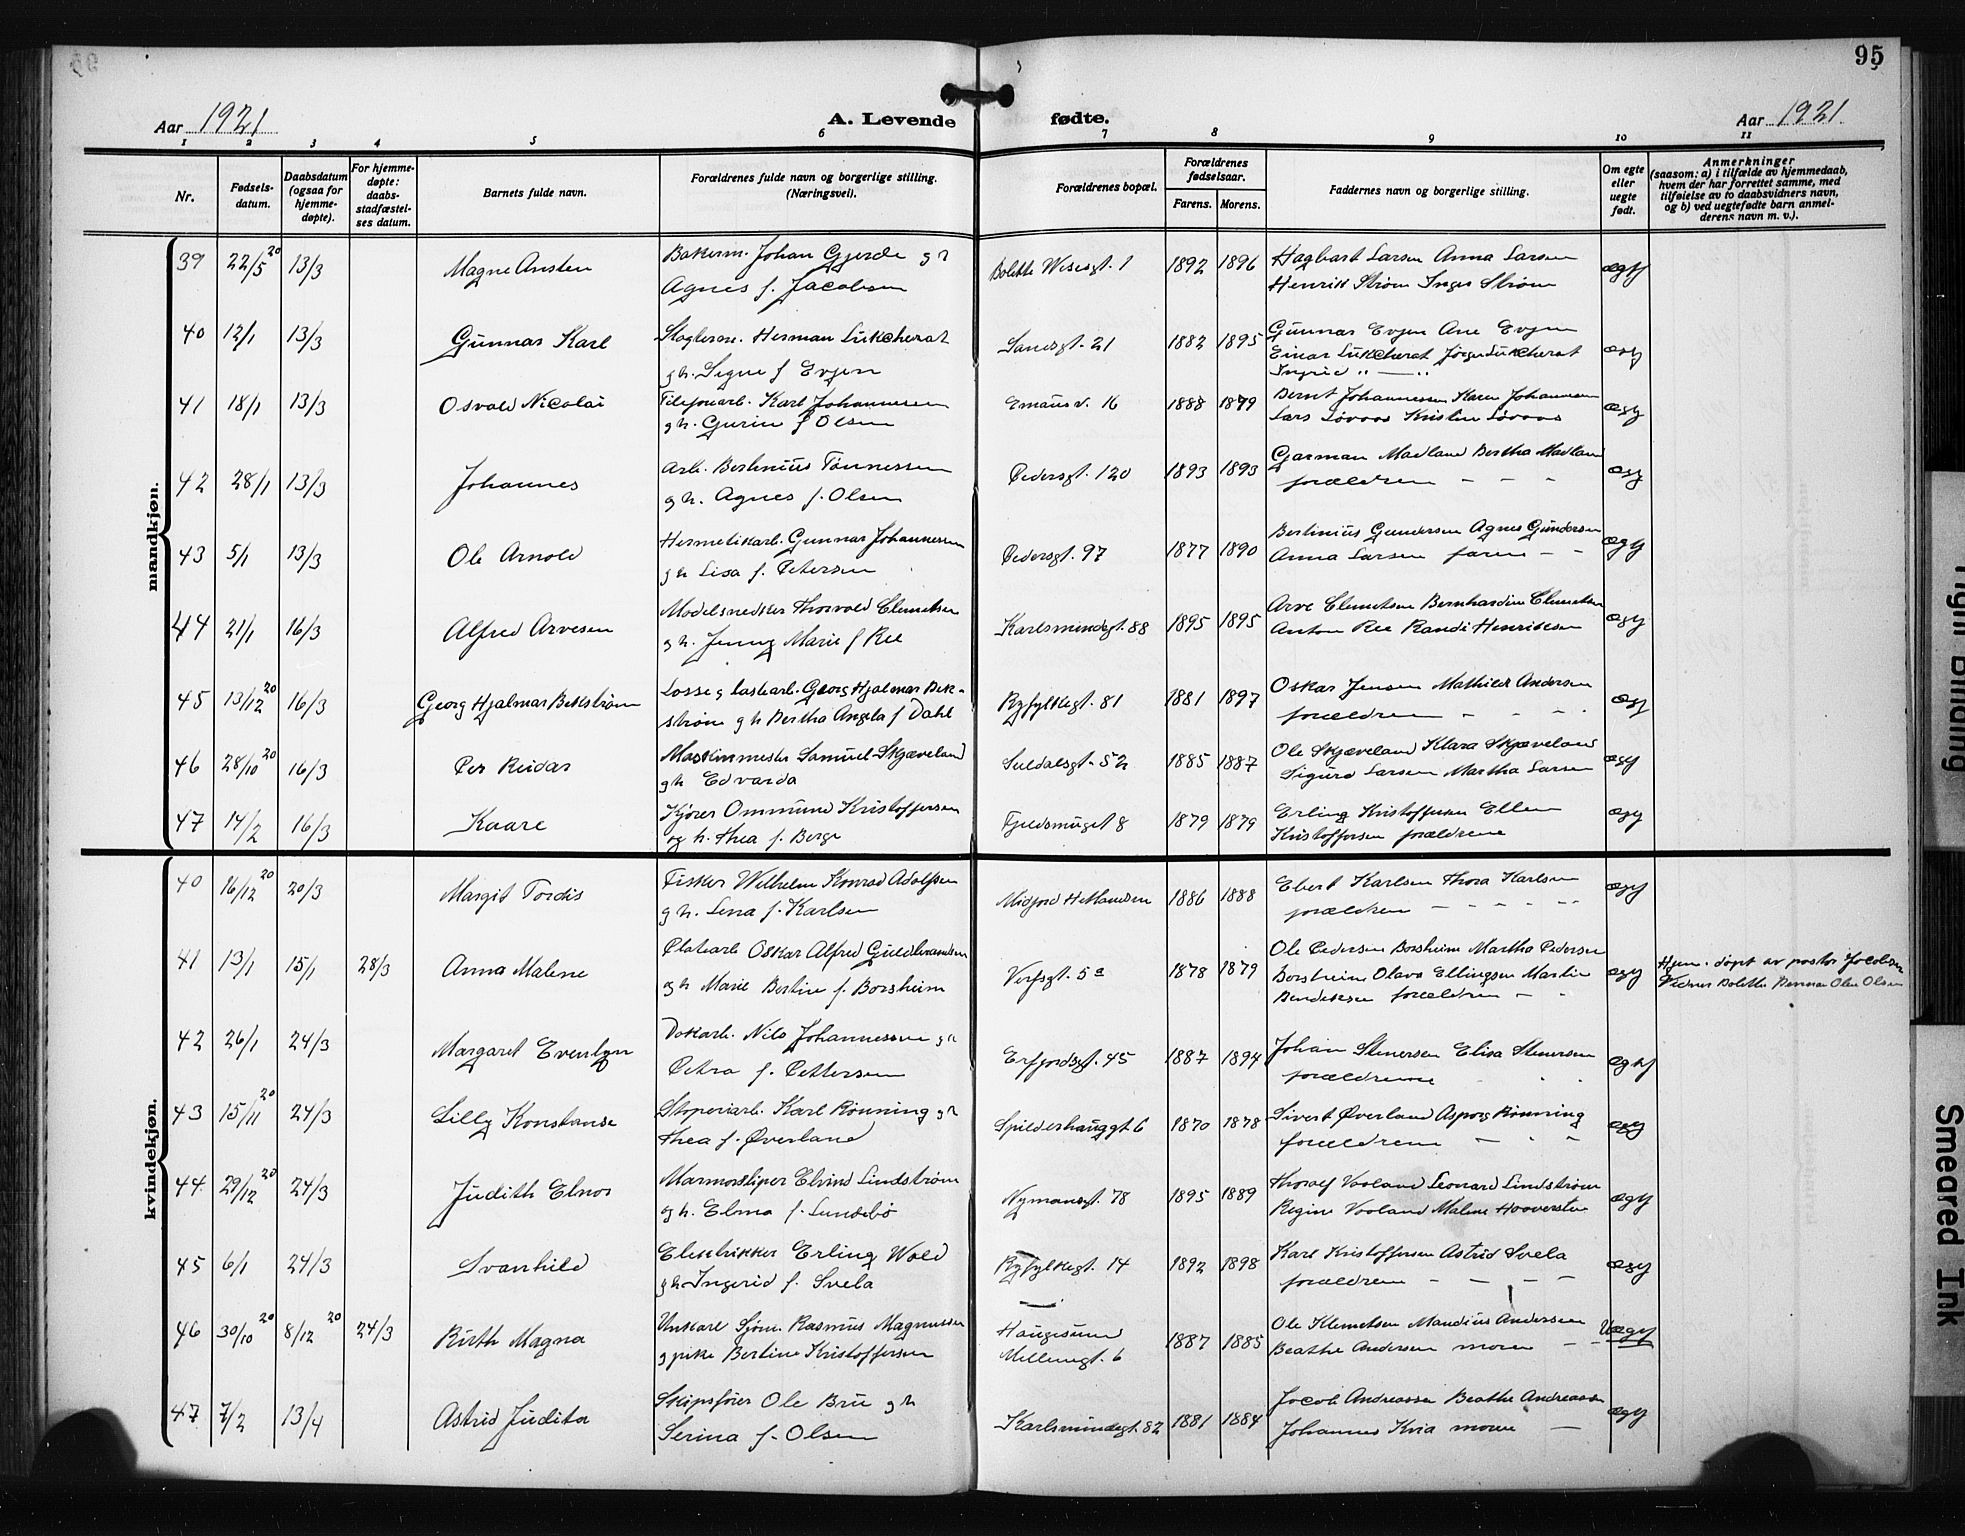 95
Aar 1921
A. Levende fødte.
Aar 1921.
1 2 3 4 5 6 7 8 9 10 11
Nr.
Fødsels-
datum.
Daabsdatum
(ogsaa for
hjemme-
døpte).
For hjemme-
døpte:
daabs-
stadfæstel-
ses datum.
Barnets fulde navn.
Forældrenes fulde navn og borgerlige stilling.
(Næringsvei).
Forældrenes bopæl.
Forældrenes
fødselsaar.
Farens. Morens.
Faddernes navn og borgerlige stilling.
Om egte
eller
uegte
født.
Anmerkninger
(saasom: a) i tilfælde av hjemmedaab,
hvem der har forrettet samme, med
tilføielse av to daabsvidners navn,
og b) ved uegtefødte barn anmel-
derens navn m. v.).
mandkjøn.
39 22/5 20 13/3 Magne Ansten Bakerm. Johan Gjerde g h Bolette Wiesesgt. 1 1892 1896 Hagbart Larsen Anna Larsen ægte
Agnes f. Jacobsen Henrik Strøm Inger Strøm
40 12/1 13/3 Gunnar Karl Slagterm. Herman Lukcherat Sandsgt. 21 1882 1895 Gunnar Evjen Ane Evjen æg
g h. Signe f Evjen Einar Lukcherat Jørgen Lukcherat
Ingrid " — "
41 18/1 13/3 Osvald Nicolai Telefonarb. Karl Johannessen Emausv. 16 1888 1879 Bernt Johannessen Karen Johannessen æg
g h. Gurine f Olsen Lars Løvaas Kristine Løvaas
42 28/1 13/3 Johannes Arb. Bertinius Tønnessen Pedersgt. 120 1893 1893 Garman Madland Bertha Madland æg
g h. Agnes f. Olsen forældrene - - -
43 5/1 13/3 Ole Arnold Hermetikarb. Gunnar Johannessen Pedersgt. 97 1877 1890 Bertinius Gundersen Agnes Gundersen æg
g h Lisa f. Petersen Anna Larsen faren - -
44 21/1 16/3 Alfred Arvesen Modelsnedker Thorvald Clemetsen Karlsmindegt. 88 1895 1895 Arve Clemetsen Bernhardine Clemetsen æg
g h. Jenny Marie f Ree Anton Ree Randi Henriksen
45 13/12 20 16/3 Georg Hjalmar Bekstrøm Losse g lastearb. Georg Hjalmar Bek- Ryfylkegt. 81 1881 1897 Oskar Jensen Mathilde Andersen æg
strøm g h Bertha Angela f Dahl forældrene - - -
46 28/10 20 16/3 Per Reidar Maskinmester Samuel Skjæveland Suldalsgt. 52 1885 1887 Ole Skjæveland Klara Skjæveland æg
g h Edvarda Sigurd Larsen Martha Larsen
47 14/2 16/3 Kaare Kjører Ommund Kristoffersen Fjeldsmuget 8 1879 1879 Erling Kristoffersen Ellen æg
og h. Thea f. Berge Kristoffersen forældrene
kvindekjøn.
40 16/12 20 20/3 Margit Tordis Fisker Wilhelm Konrad Adolfsen 1886 1888 Ebert Karlsen Thora Karlsen æg
g h. Lena f. Karlsen forældrene - - - - -
41 13/1 15/1 28/3 Anna Malene Platearb Oskar Alfred Guldbrandsen Verfsgt. 5a 1878 1879 Ole Pedersen Borsheim Martha Pedersen æg Hjem. døpt av pastor Jacobsen
g h Marie Bertine f. Borsheim Borsheim Olava Ellingsen Martin
Bendiksen forældrene - -
42 26/1 24/3 Margaret Evenlyn Dokarb. Nils Johannessen g h Erfjordsgt. 45 1887 1894 Johan Stenersen Elisa Stenersen ægte
Petra f. Pettersen forældrene
43 15/11 20 24/3 Lilly Konstanse Støperiarb. Karl Rønning g h Spilderhauggt 6 1870 1878 Sivert Øverland Asporg Rønning æg
Thea f. Øverland forældrene - - -
44 29/12 20 24/3 Judith Elnor Marmorsliper Elvind Lindstrøm Nymansgt. 78 1895 1889 Thoralf Vooland Leonard Lindstrøm æg
g h. Elma f. Lundebø Regine Vooland Malene
45 6/1 24/3 Svanhild Elektrikker Erling Wold Ryfylkegt. 14 1892 1898 Karl Kristoffersen Astrid Svela æg
g h Ingerid f. Svela forældrene - - - -
46 30/10 20 8/12 20 24/3 Ruth Magna Unkarl Sjøm. Rasmus Magnussen Haugesund 1887 1885 Ole Klemetsen Mandius Andersen Uæg
g pike Bertine Kristoffersen Mellemgt. 6 Beathe Andersen moren -
47 7/2 13/4 Astrid Judita Skipsfører Ole Bru g h Karlsmindegt. 82 1881 1884 Jacob Andreassen Beathe Andreassen æg
Serina f. Olsen Johannes Kvia moren —
Tight Binding
Smeared Ink